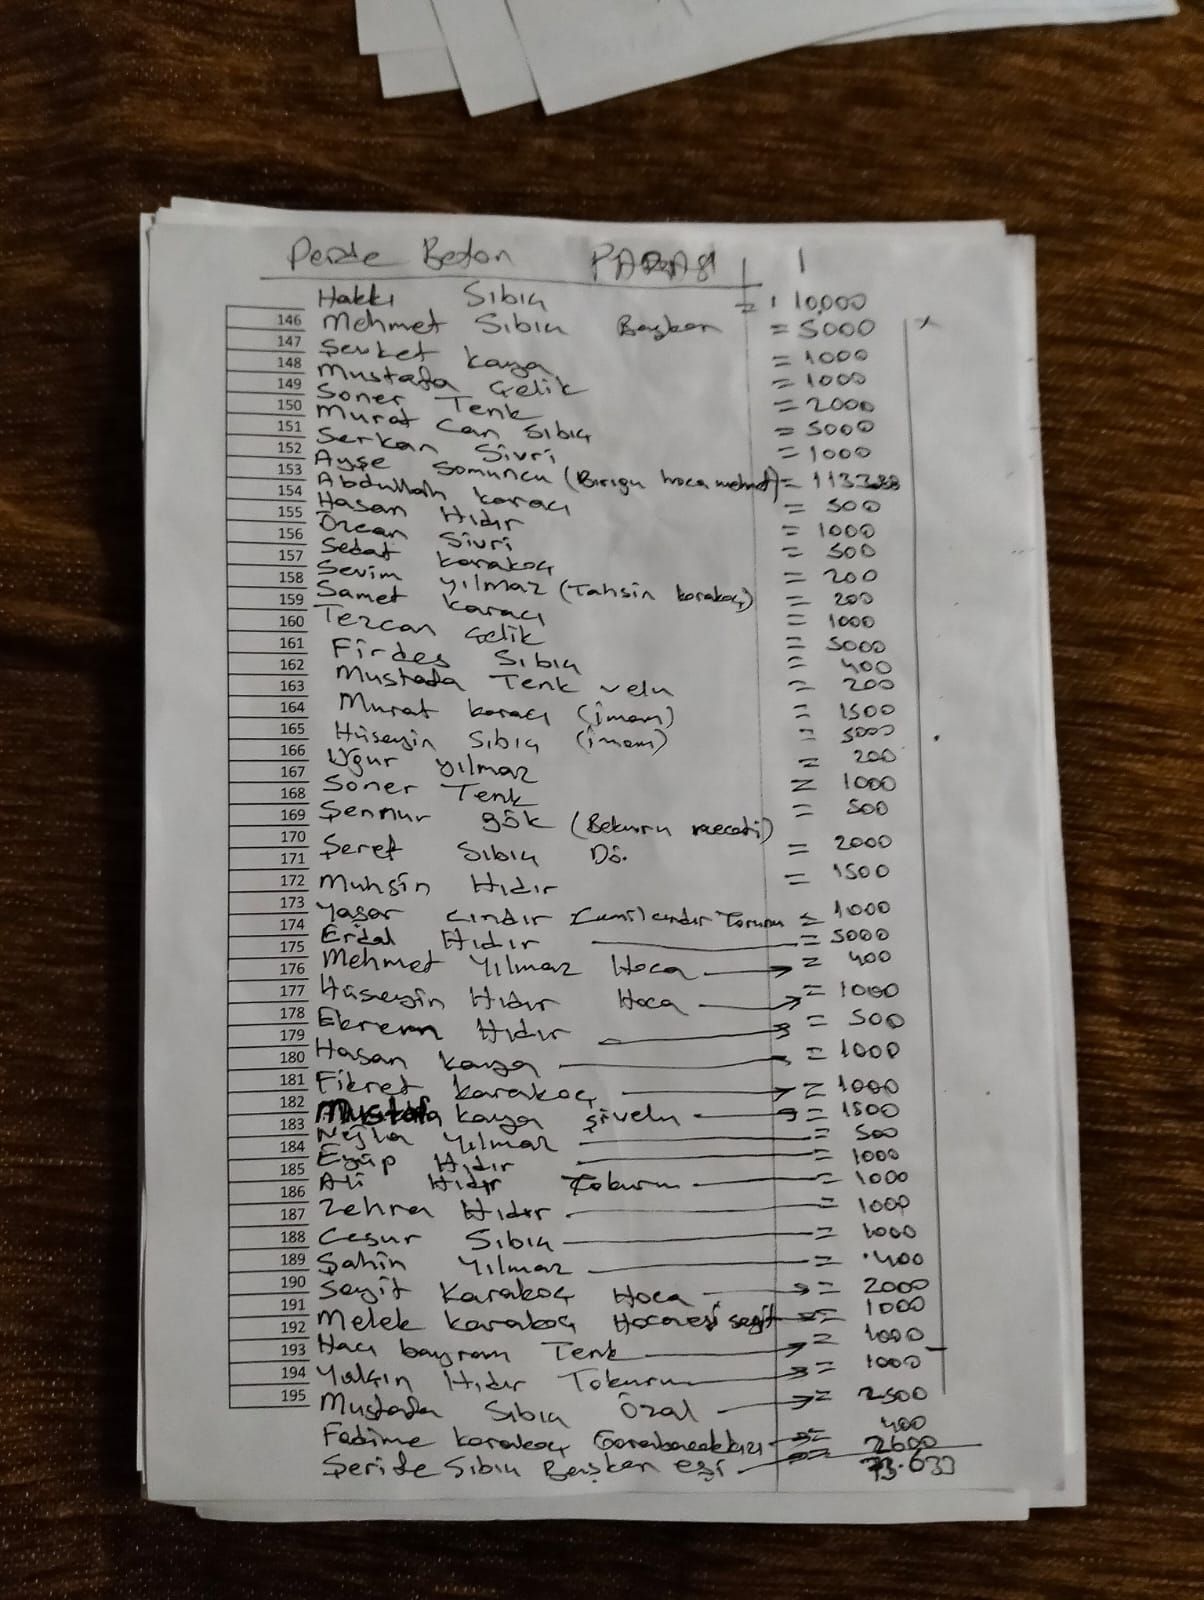 Perde Beton PARASI 1
Hakkı Sıbıç = 10,000
146 Mehmet Sıbıç Başkan = 5000
147 Şevket kaya = 1000
148 Mustafa Çelik = 1000
149 Soner Tenk = 2000
150 Murat Can Sıbıç = 5000
151 Serkan Sivri = 1000
152 Ayşe Somuncu (Birigu hoca mehmet) = 113388
153 Abdullah karacı = 500
154 Hasan Hıdır = 1000
155 Özcan Sivri = 500
156 Sedat karakoç = 200
157 Sevim yılmaz (Tahsin karakoç) = 200
158 Samet karacı = 1000
159 Tezcan Çelik = 5000
160 Firdes Sıbıç = 400
161 Mustafa Tenk velu = 200
162 Murat karacı (imam) = 1500
163 Hüseyin Sıbıç (imam) = 5000
164 Uğur yılmaz = 200
165 Soner Tenk = 1000
166 Şennur gök = 500
167 Şeref Sıbıç Dö. = 2000
168 Muhsin Hıdır = 1500
169 Yaşar cındır cındır Torunu = 1000
170 Erdal Hıdır = 5000
171 Mehmet Yılmaz Hoca = 400
172 Hüseyin Hıdır Hoca = 1000
173 Ekrem Hıdır = 500
174 Hasan kaya = 1000
175 Fikret karakoç = 1000
176 Mustafa kaya şivelu = 1500
177 Nejla Yılmaz = 500
178 Eyüp Hıdır = 1000
179 Ali Hıdır Tokuru = 1000
180 Zehra Hıdır = 1000
181 Cesur Sıbıç = 1000
182 Şahin Yılmaz = 400
183 Seyit Karakoç Hoca = 2000
184 Melek karakoç seyit = 1000
185 Hacı bayram Tenk = 1000
186 Yalçın Hıdır Tokuru = 1000
187 Mustafa Sıbıç Özal = 2500
188 Fadime karakoç = 400
189 Şerife Sıbıç Başkan eşi = 2600
190 73.633
191
192
193
194
195